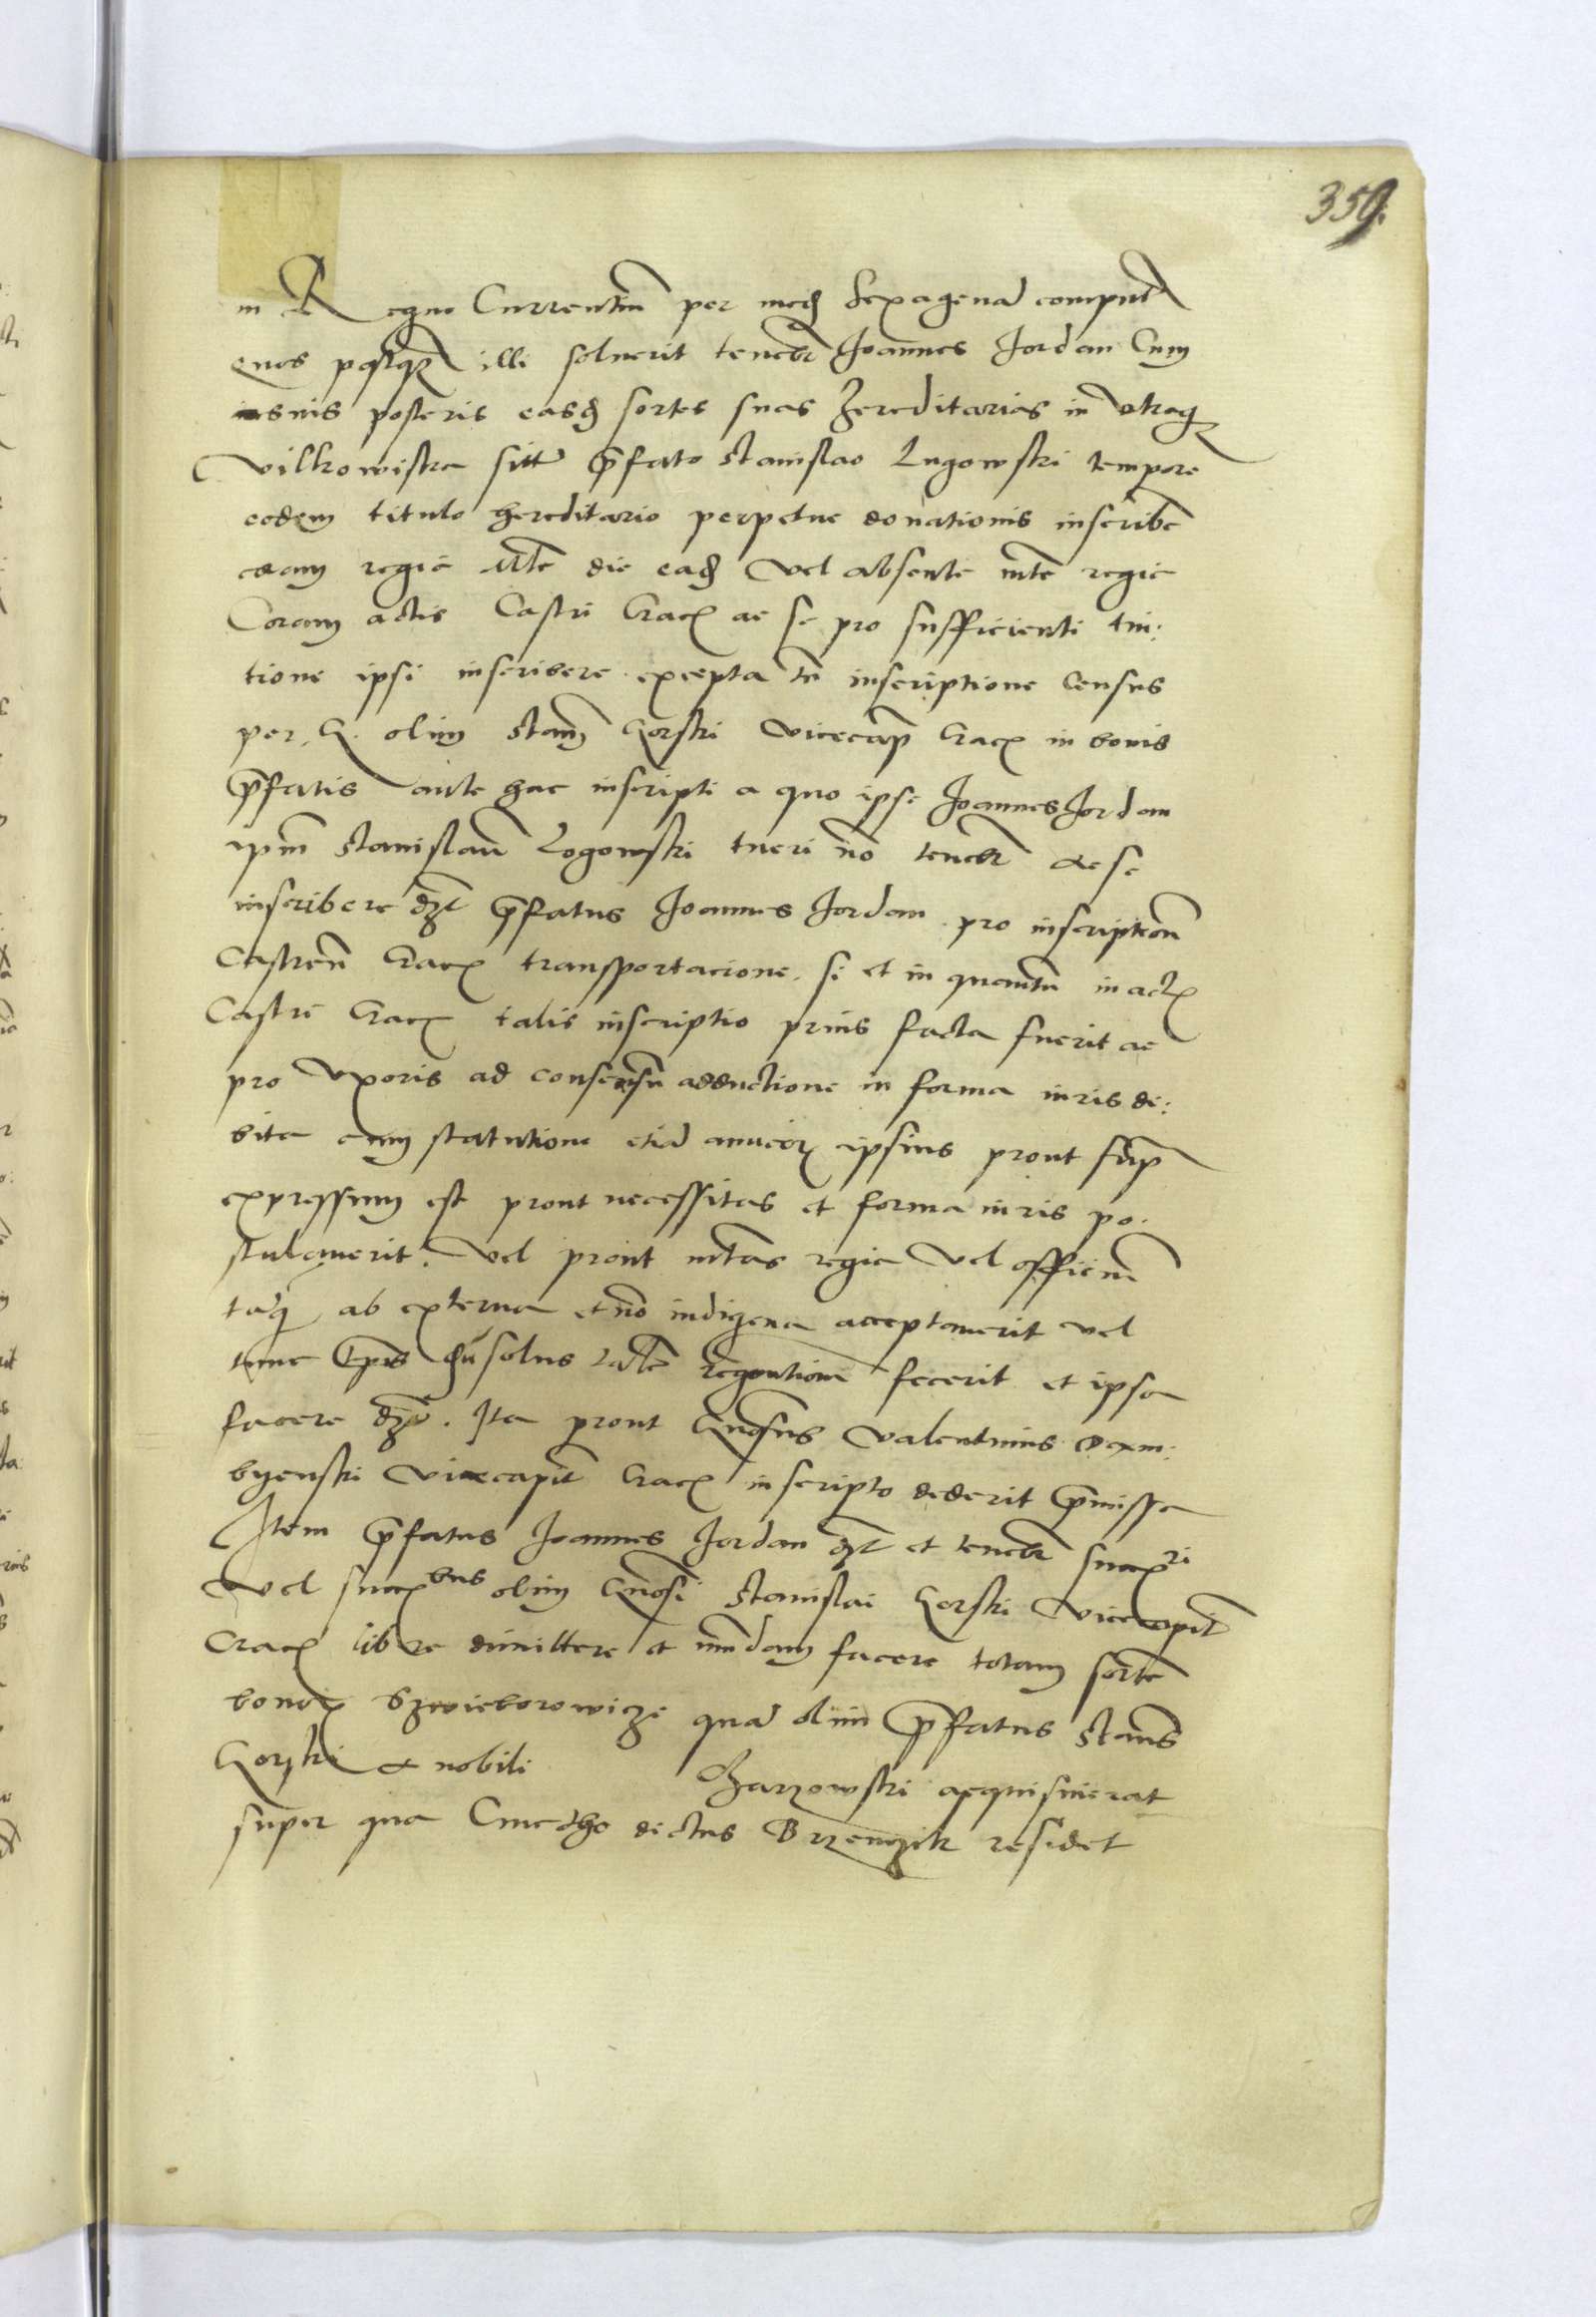 359.
in Regno Currentium per med Sexagenas computa
quos postquam illi solverit tenebr Joannes Jordan Cum
suis posteris easd sortes suas Hereditarias in utraq
Vilkowiska sitt prefato Stanislao Lugowski tempore
eodem titulo hereditario perpetue donationis inscribe
coram regia Mte die ead vel absente mte regia
Coram actis Castri Crac ac se pro sufficienti tui:
tione ipsi inscribere excepta tn inscriptione Census
per G. olim Stam Gorski vicecap Crac in bonis
prefatis ante hac inscripti a quo ipse Joannes Jordan
ipm Stanislaum Logowski tueri no tenebr ac se
inscribere dzt prefatus Joannes Jordan pro inscription
Castren Crac transportacione. si et in quantu in act
Castri Crac talis inscriptio prius facta fuerit ac
pro Uxoris ad consensu adductione in forma iuris de:
bita cum statutione etia amicor ipsius prout sup
expressum est prout necessitas et forma iuris po:
stulaverit. Vel prout mtas regia vel officium
taq ab externa et no indigena acceptaverit vel
tunc solus fecerit et ipse
facere dzt. Ita prout Gnosus Valentinus Dem:
byenski vicecapit Crac in scripto dederit premissa
Item prefatus Joannes Jordan dzt et tenebr succri
vel succbus olim Gnosi Stanislai Gorski vicecapit
Crac libere dimittere et mundam facere totam sorte
bonor Szwieborowicze qua olim prefatus Stanus
Gorzki a nobili Charzowski acquisiverat
super qua Cmetho dictus Brzemzik residet